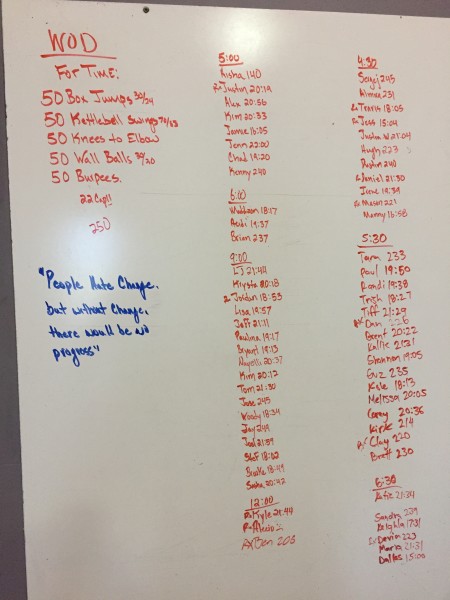 WOD
FOR TIME:
50 Box Jumps 30/24
50 Kettlebell Swings 70/53
50 Knees to Elbow
50 Wall Balls 30/20
50 Burpees.
22 Cap!!
250
"People Hate Change.
but without change,
there would be no
progress"
5:00
Aisha 140
Rx Justin 20:19
Alex 20:56
Kim 20:33
16:05
Jenn 22:00
Chad 19:20
Kenny 240
6:00
18:17
19:37
Brian 237
9:00
LJ 21:44
Krysta 20:18
Rx Jordan 18:53
Lisa 19:57
Jeff 21:11
Paulina 19:17
Bryant 18:13
20:37
Kim 20:12
Tom 21:30
Jose 245
Woody 18:34
Jay 249
21:59
Stef 18:02
Blake 18:49
Sasha 20:42
12:00
Rx Kyle 21:44
Rx
Rx Ben 203
4:30
Sergej 245
Aimee 231
Rx Travis 18:05
Rx Jess 15:04
Justin W 21:04
Hugh 223
Dustin 240
Rx Daniel 21:30
June 19:39
Rx Mason 221
Manny 16:58
5:30
Tara 233
Paul 19:50
Randi 19:38
Trish 18:27
Tiff 21:29
Rx Dan 226
Brent 20:22
Kallie 21:31
Shannon 19:05
Guz 235
Kole 18:13
Melissa 20:05
Corey 20:36
Kirk 214
Rx Clay 220
Brett 230
6:30
Katie 21:34
Sandra 239
17:31
Rx Devin 223
Maria 21:31
Dallas 15:00